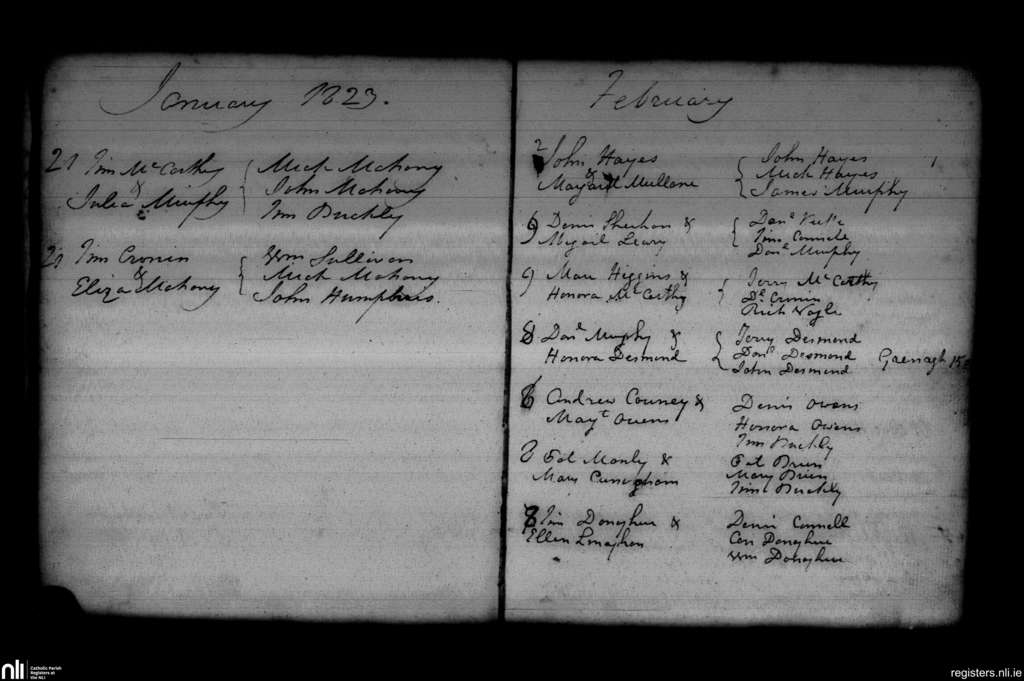 January 1823.
21 Tim McCarthy { Mich Mahony
& John Mahony
Julia Murphy Tim Buckley
Tim Cronin { Wm Sullivan
& Mich Mahony
Eliza Mahony John Humphries.
February
2 John Hayes { John Hayes
& Mich Hayes
Margaret Mullane James Murphy
9 Denis Sheehan & {
Leary Tim Connele
Danl Murphy
9 Mau Higgins & { Jerry McCarthy
Honora McCarthy Dl Cronin
Rich Nagle
8 Danl Murphy & { Jerry Desmond
Honora Desmond Danl Desmond Grenagh
John Desmond
Andrew Couney & Denis Owens
Mayt Owens Honora Owens
Tim Buckly
Pat Manly & Pat Brien
Mary Cunigham Mary Brien
Tim Buckly
8 Tim Donoghue & Denis Connell
Ellen Con Donoghue
Wm Donoghue
nli
Catholic Parish
Registers at
the NLI
registers.nli.ie